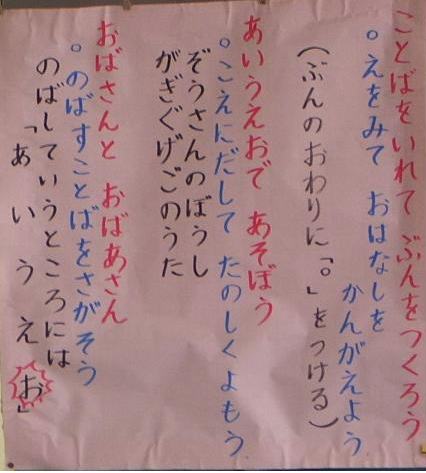 ことばをいれて ぶんをつくろう
。えをみて おはなしを
かんがえよう
(ぶんのおわりに「。」をつける)
あいうえおで あそぼう
。こえにだして たのしくよもう
ぞうさんのぼうし
がぎぐげごのうた
おばさんと おばあさん
。のばすことばをさがそう
のばしていうところには
「あ い う え お」